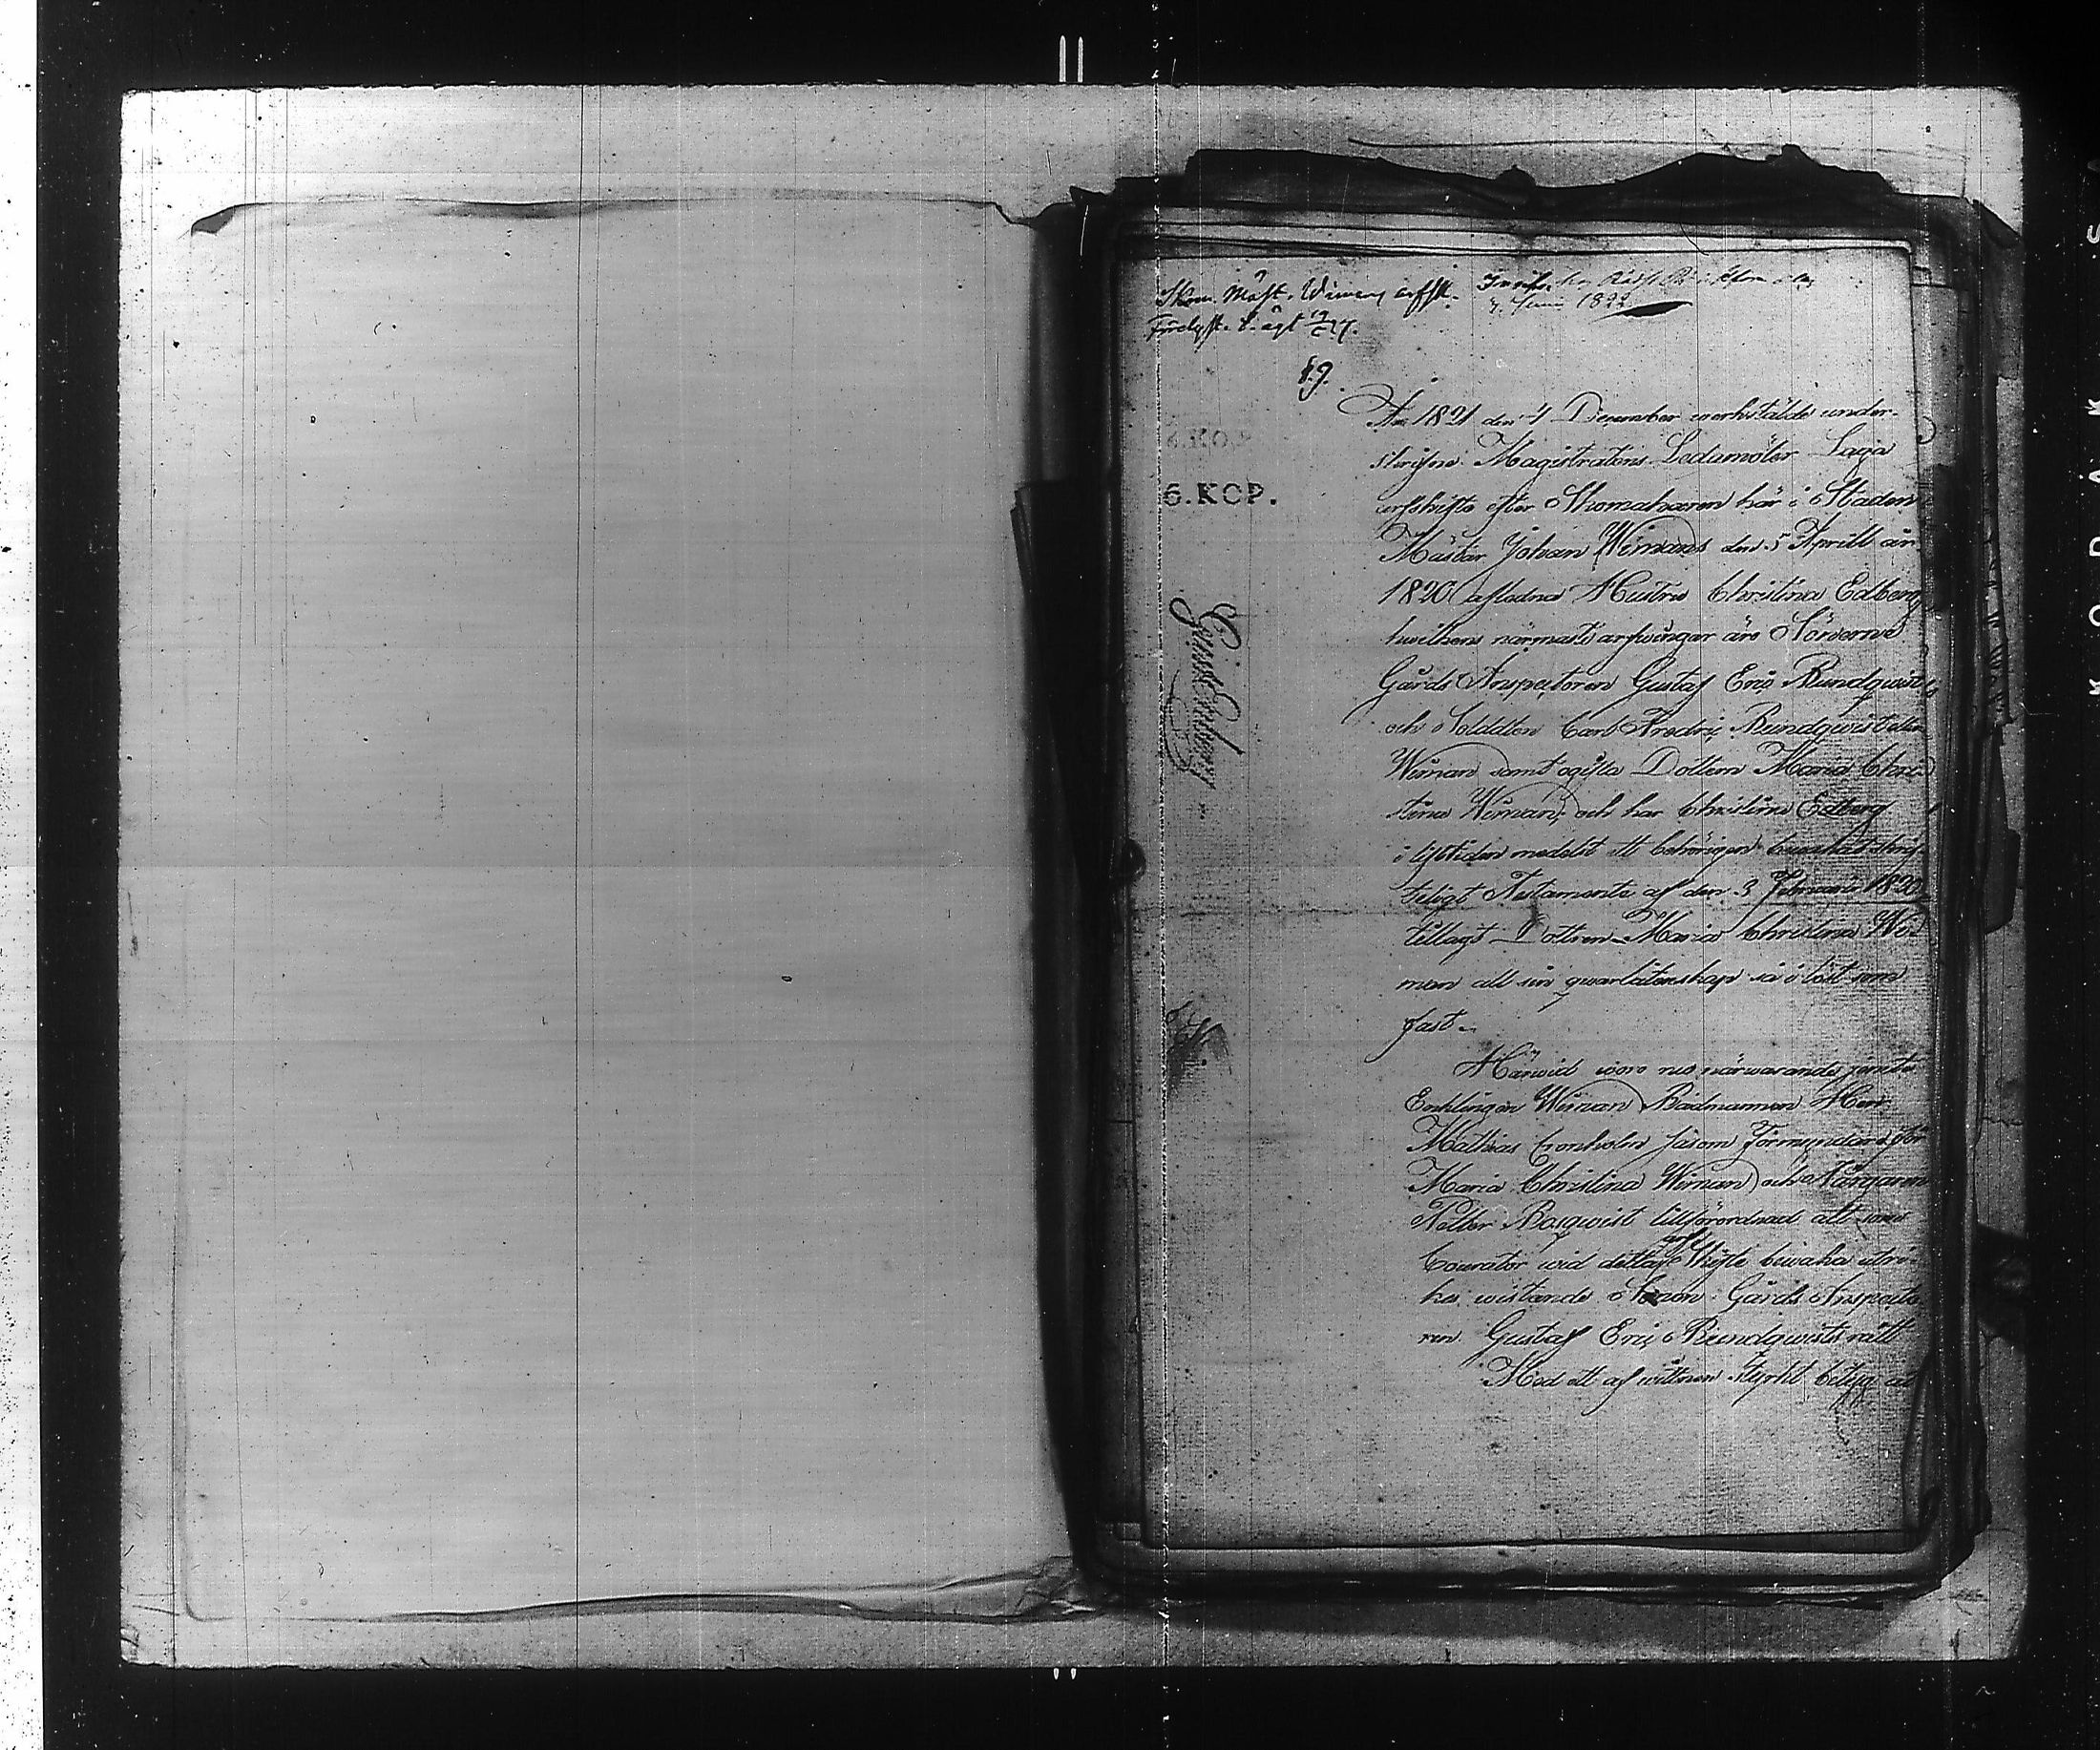 Skom. Mäst. Wiman arfsk.
1822
§ 9.
År 1821 den 4 December werkstälde under-
skrifne Magistratens Ledamöter Laga
arfskifte efter Skomakaren här i Staden
Mäster Johan Wimans den 5 Aprill år
1820 afledna Hustru Christina Edberg
hwilkens närmaste arfwingar äro Sönerne
Gårds Inspectoren Gustaf Eric Rundqwist
och Soldaten Carl Fredric Rundqwist eller
Wiman samt ogifta Dottern Maria Chri-
stina Wiman; och har Christina Edberg
i lifstiden medelst ett behörigen bewakat skrif-
teligt Testamente af den 3 Februarii 1820
tillagt Dottren Maria Christina Wi-
man all sin qwarlåtenskap så i löst som
fast.
Härwid woro nu närwarande jemte
Enklingen Wiman Rådmannen Herr
Mathias Cronholm såsom Förmyndare för
Maria Christina Wiman och Färgaren
Petter Bosqwist tillförordnad att som
Courator wid detta arfskifte bewaka utri-
kes wistande Sonen Gårds Inspecto-
ren Gustaf Eric Rundqwists rätt
Med ett af wittnen styrkt betyg
6.KOP.
6.KOP.